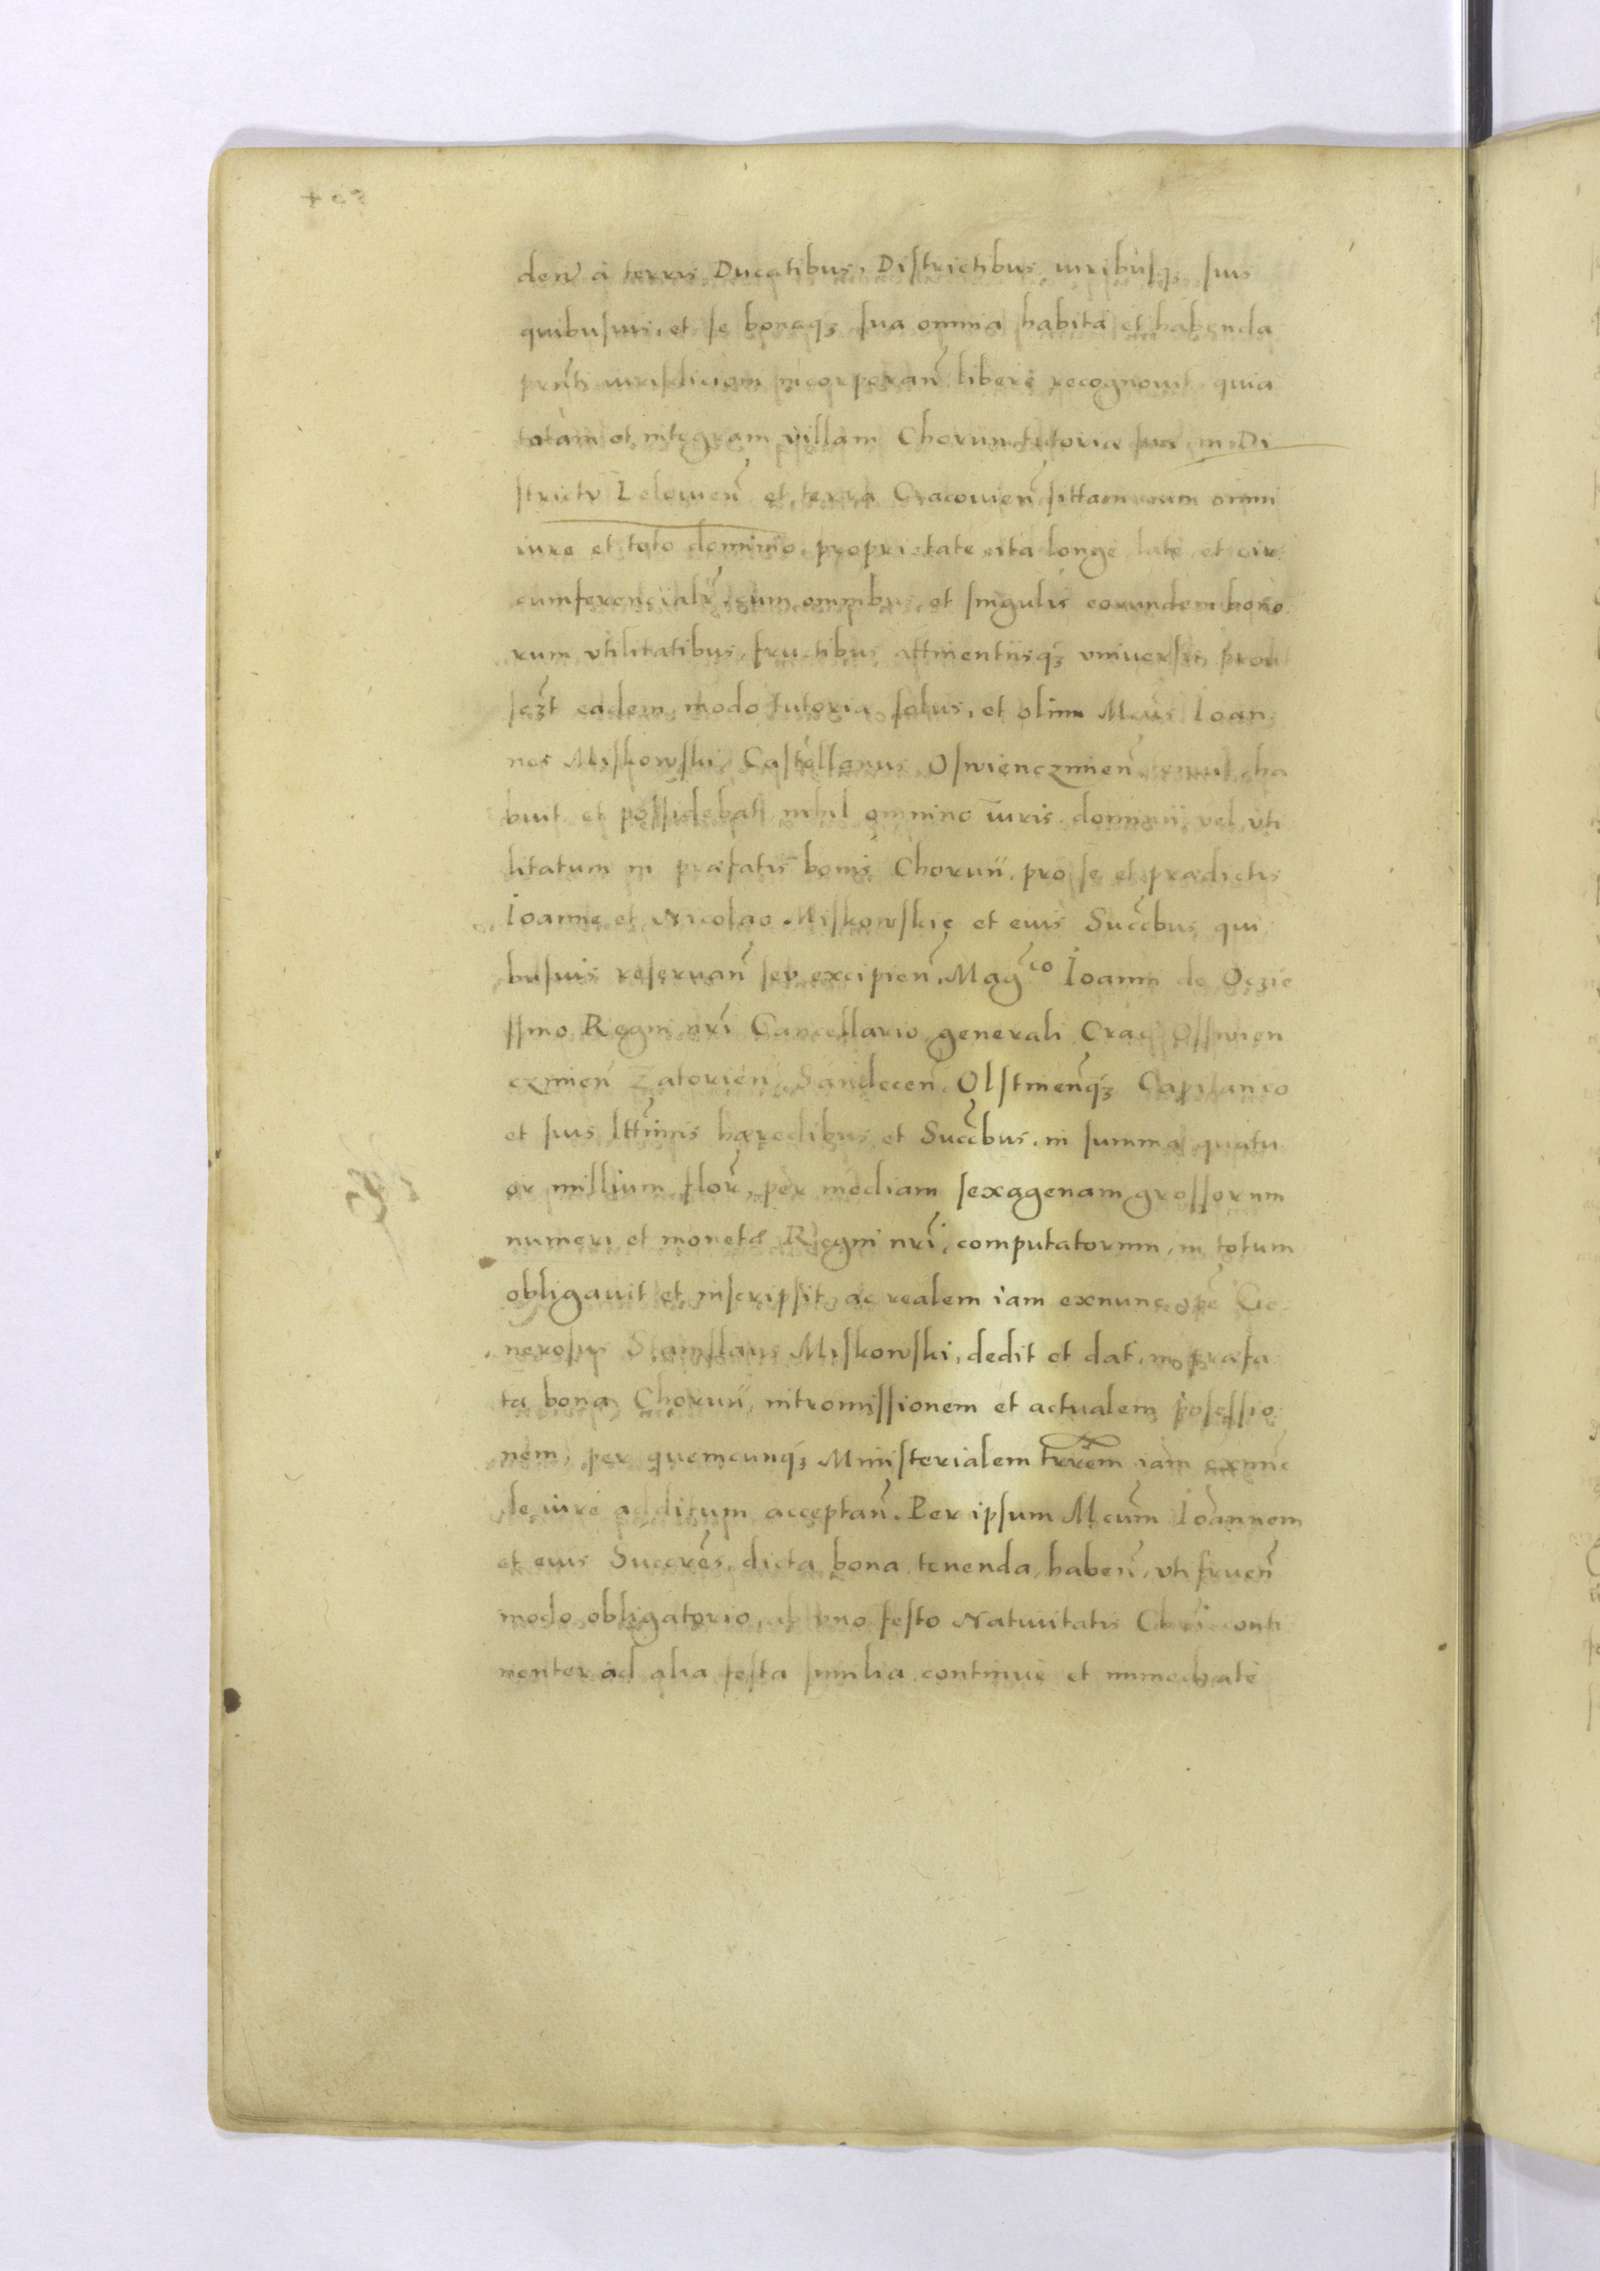 den̄ à terris Ducatibus, Districtibus iuribusq₃ suis
quibusuis, et se bonaq₃ sua omnia habita et habenda
prn̄ti iurisdicioni incorporan̄ libere recognovit quia
totam et integram villam Chorun tutoriae suae in Di
strictu Lelouien̄ et terra Cracouien̄ sittam cum omni
iure et toto dominio, proprietate ita longe late et cir
cumferencialr̄, cum omnibus et singulis eorundem bono
rum vtilitatibus, fructibus attinentiisq₃ vniuersis prout
se₃t eadem modo tutoria solus, et olim Mcūs Ioan
nes Miskowski Castellanus Oswienczimien̄ tenuit, ha
buit et possidebat, nihil omnino iuris dominii vel vti
litatum in praefatis bonis Chorun, pro se et praedictis
Ioanne et Nicolao Miskowskie et eius Succ̄bus qui
busuis reseruan̄ seu excipien̄, Maḡco Ioanni de Oczie
ssino Regni nr̄i Cancellario generali Crac̄ Osswien
czimien̄ Zatorien̄ Sandecen̄ Olstinen̄q₃ Capitaneo
et suis ltt̄imis haeredibus et Succ̄bus, in summa quatu
or millium flor̄, per mediam sexagenam grossorum
numeri et monetae Regni nr̄i, computatorum, in totum
obligauit et inscripsit, ac realem iam exnunc Ge
nerosus Stanislaus Miskowski, dedit et dat, in praefa
ta bona Chorun, intromissionem et actualem posessio
nem, per quemcunq₃ Ministerialem trr̄em iam exnunc
de iure additum acceptan̄. Per ipsum Mcūm Ioannem
et eius Succr̄es, dicta bona tenenda, haben̄, vti fruen̄
modo obligatorio, ab vno festo Natiuitatis Chr̄i conti
nenter ad alia festa similia continue et immediate